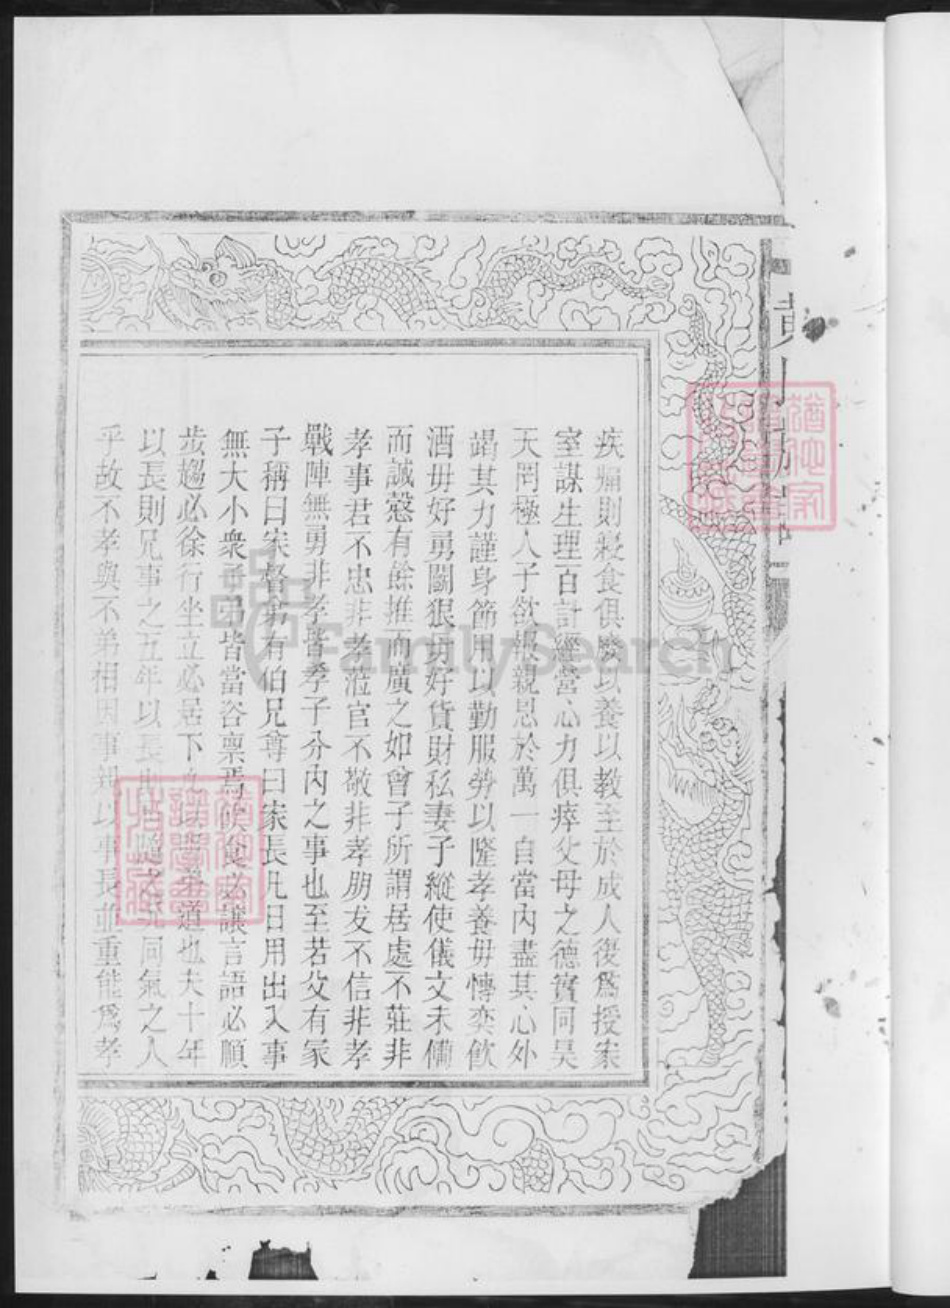 疾痛則寢食俱廢以養以教至於成人復爲授家
室謀生理百計經營心力俱瘁父母之德實同昊
天罔極人子欲報親恩於萬一自當內盡其心外
竭其力謹身節用以勤服勞以隆孝養毋慱奕飲
酒毋好勇鬭狠毋好貨財私妻子縱使儀文未備
而誠慤有餘推而廣之如曾子所謂居處不莊非
孝事君不忠非孝蒞官不敬非孝朋友不信非孝
戰陣無勇非孝皆孝子分內之事也至若父有冡
子稱曰家督弟有伯兄尊曰家長凡日用出入事
無大小衆子弟皆當咨禀焉飲食必讓言語必順
步趨必徐行坐立必居下 道也夫十年
以長則兄事之五年以長則 隨之 同氣之人
乎故不孝與不弟相因事親 事長並重能爲孝
黃
FamilySearch